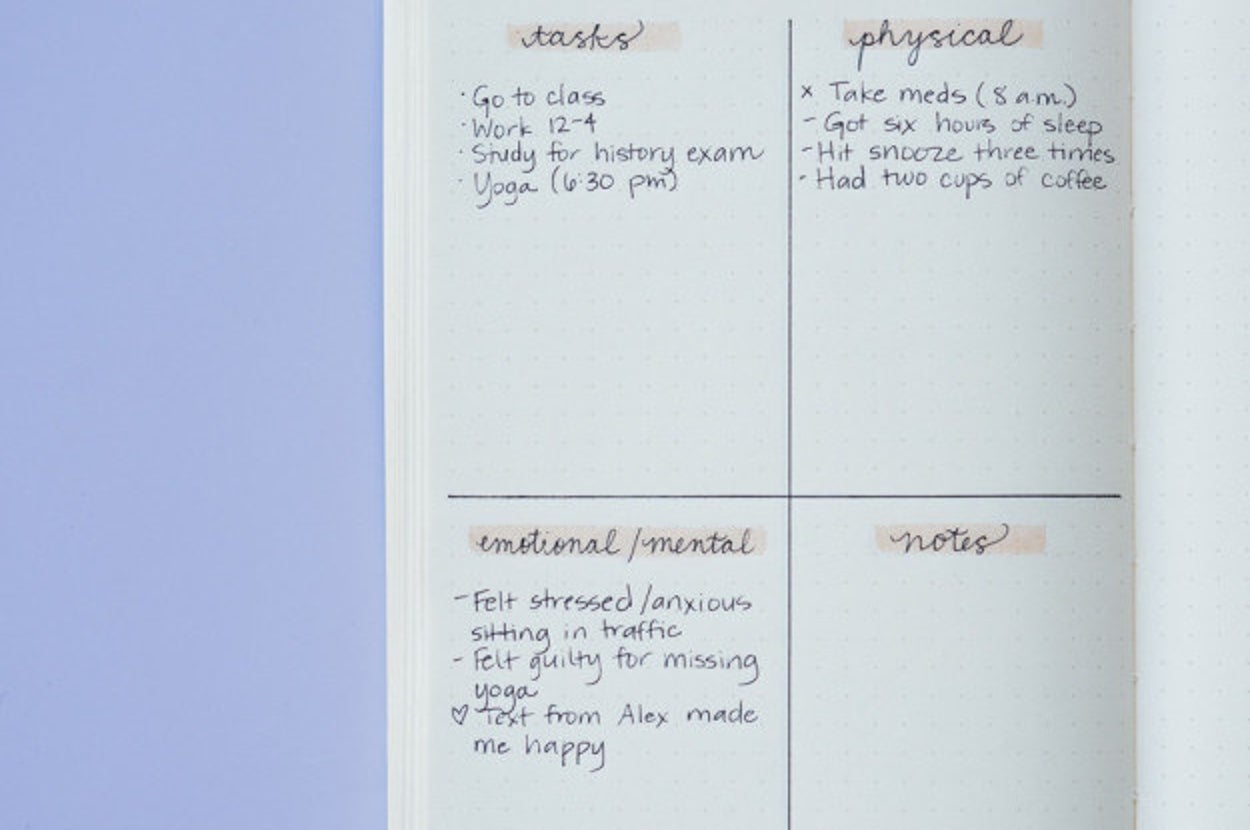 tasks
· Go to class
· Work 12-4
· Study for history exam
· Yoga (6:30 pm)
physical
x Take meds (8 a.m.)
- Got six hours of sleep
- Hit snooze three times
- Had two cups of coffee
emotional/mental
- Felt stressed/anxious
sitting in traffic
- Felt guilty for missing
yoga
♡ Text from Alex made
me happy
notes